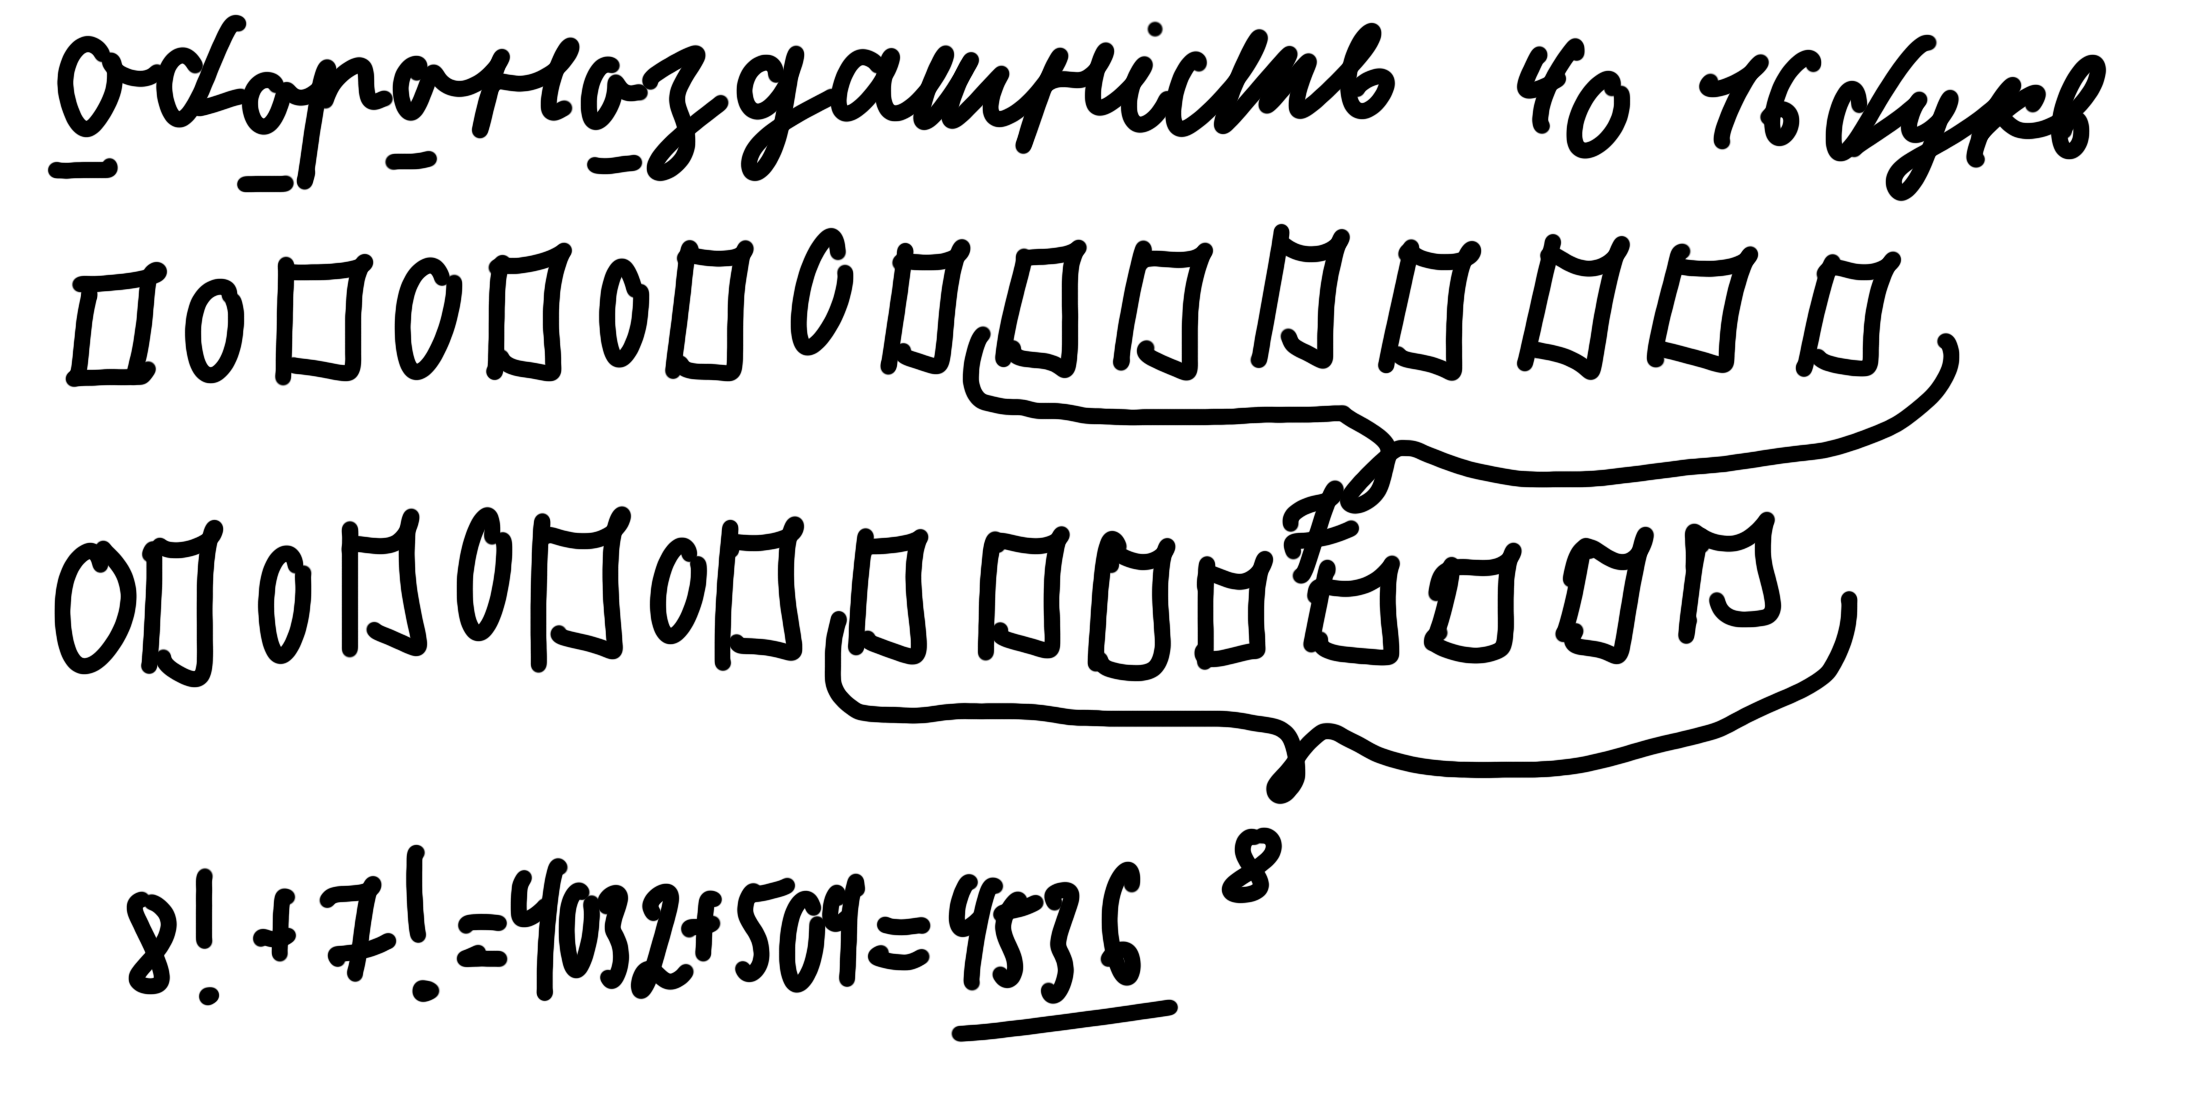 обороноздатність 4о 16 букв
□ О □ О □ О □ О □ □ □ □ □ □ □ □
7
О □ О □ О □ О □ □ □ □ □ □ □ □ □
8
8! + 7! = 4032 + 504 = 4536